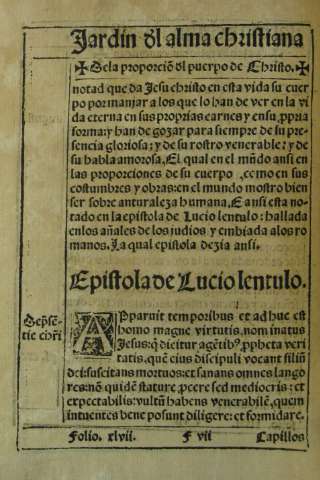 Jardin ðl alma christiana
✠ De la proporciõ ðl puerpo de Christo. ✠
notad que da Jesu christo en esta vida su cuer
po por manjar a los que lo han de ver en la vi
da eterna en sus proprias carnes y en su ꝓpria
forma: y han de gozar para siempre de su pre
sencia gloriosa: y de su rostro venerable: y de
su habla amorosa. El qual en el mũdo ansi en
las proporciones de su cuerpo como en sus
costumbres y obras: en el mundo mostro bien
ser sobre anturaleza humana. E ansi esta no
tado en la epistola de Lucio lentulo: hallada
en los añales de los judios y embiada a los ro
manos. La qual epistola dezia ansi.
Epistola de Lucio lentulo.
APparuit temporibus et ad huc est
homo magne virtutis, nominatus
Jesus: q̃ dicitur a gẽtibꝰ ꝓpheta veri
tatis, quẽ eius discipuli vocant filiũ
dei: suscitans mortuos: et sanans omnes lango
res: nõ quidẽ stature ꝓcere sed mediocris: et
expectabilis: vultũ habens venerabilẽ, quem
intuentes bene posunt diligere: et formidare.
Folio. xlvii. F vii Capillos